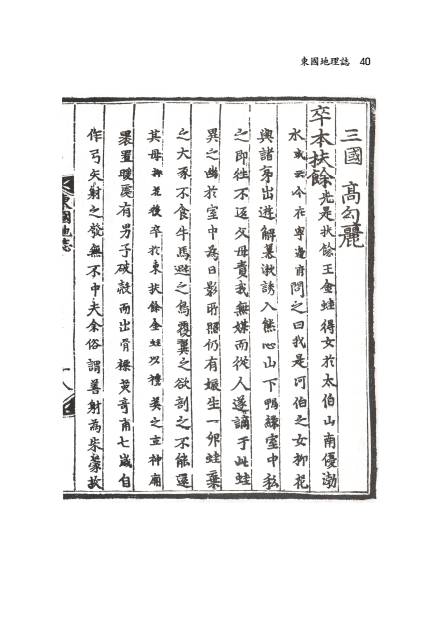 東國地理誌 40
三國 高勾麗
卒本扶餘先是扶餘王金蛙得女於太伯山南優渤
水或云今在寧邊府問之曰我是河伯之女柳花
與諸弟出遊解慕漱誘入熊心山下鴨綠室中私
之即往不返父母責我無媒而從人遂謫于此蛙
異之幽於室中為日影所照仍有娠生一卵蛙棄
之犬豕不食牛馬避之鳥覆翼之欲剖之不能還
其母柳花後卒於東扶餘金蛙以禮葬之立神廟
裹置暖處有男子破殼而出骨標英奇甫七歲自
作弓矢射之發無不中夫余俗謂善射為朱蒙故
東國地誌